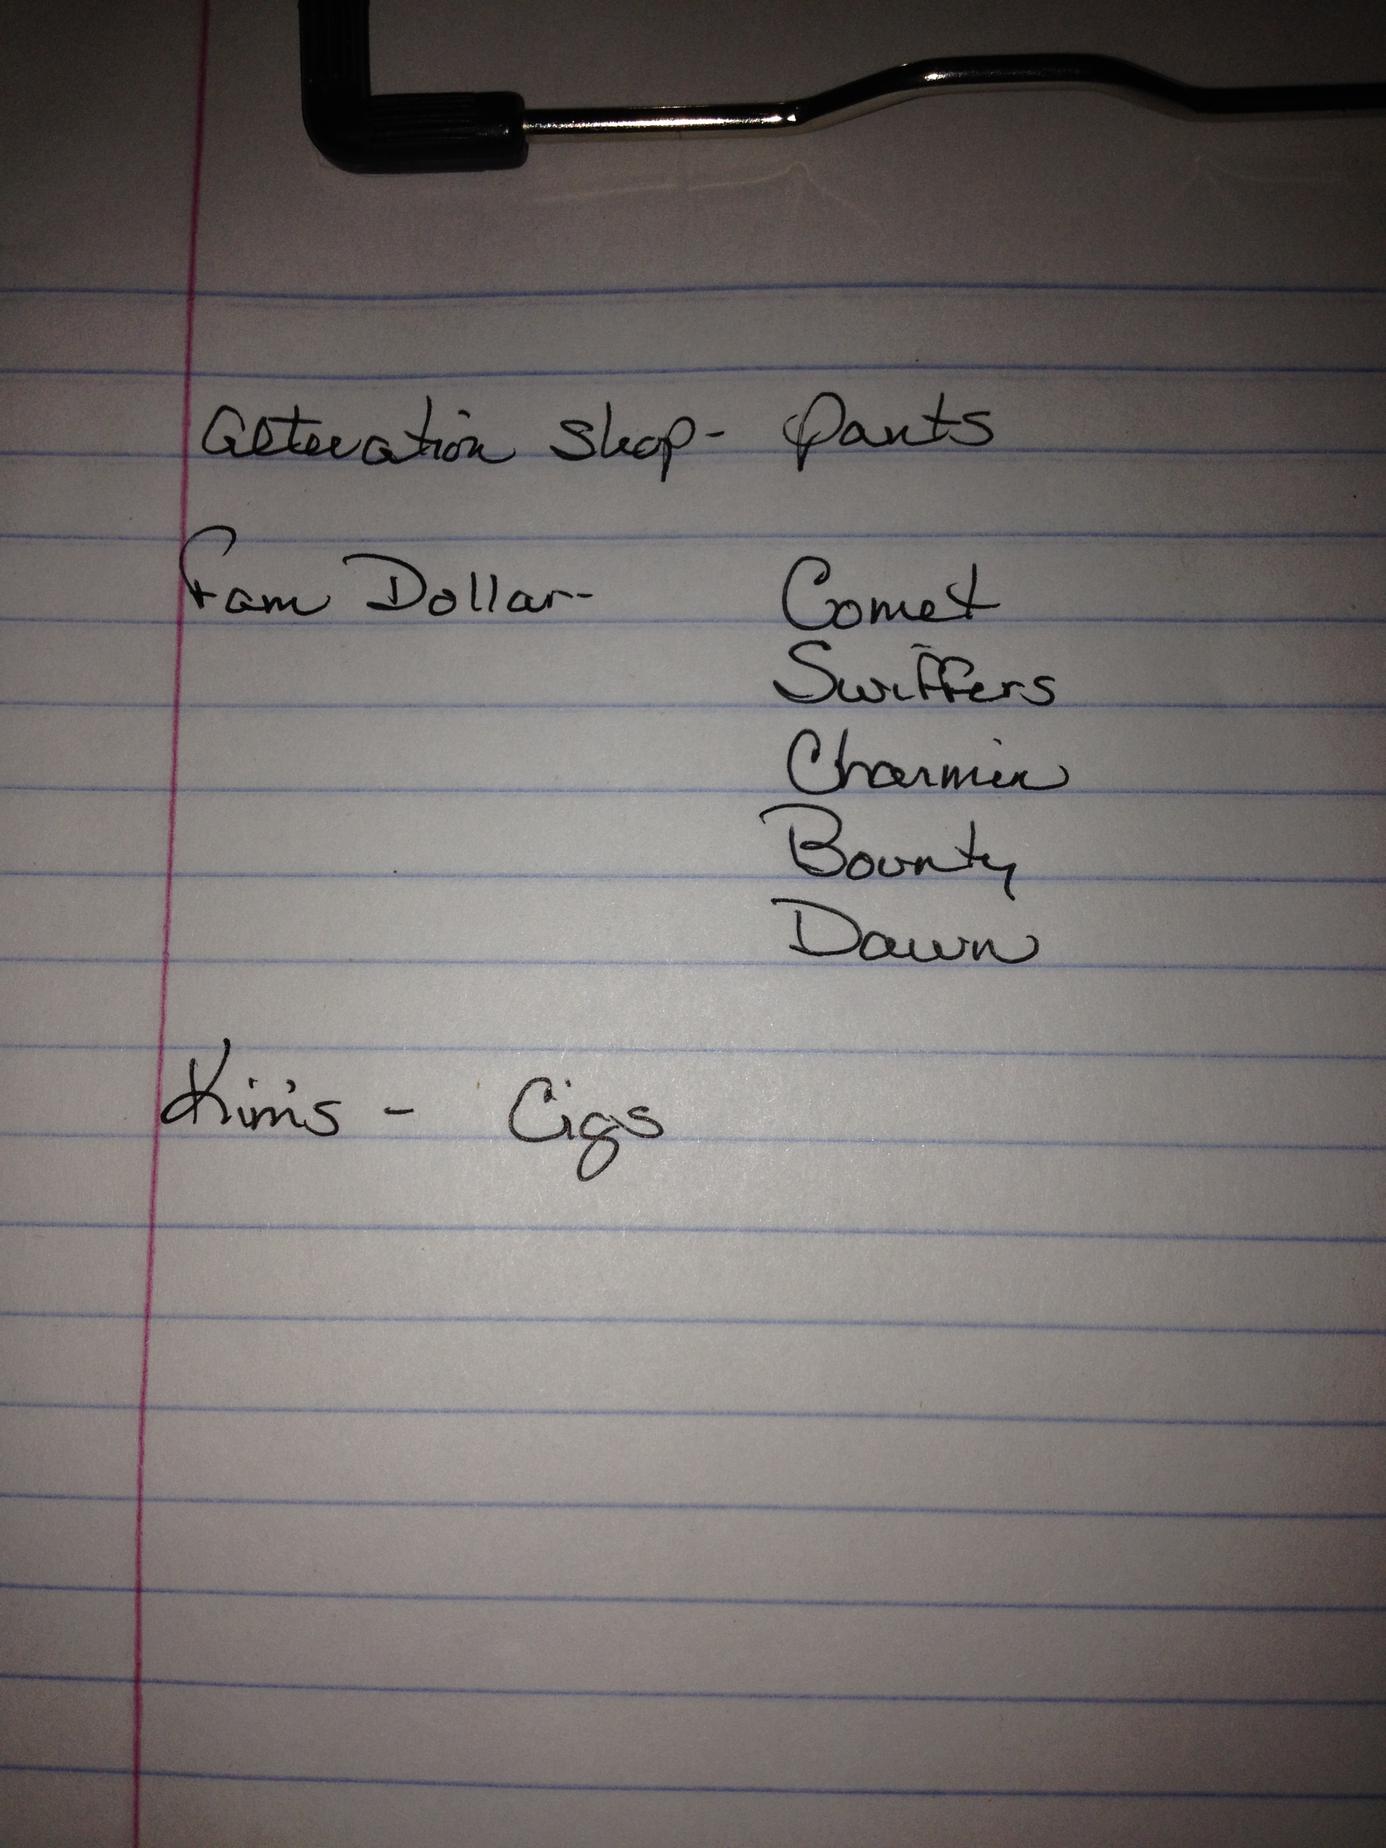 Alteration Shop- Pants
Fam Dollar- Comet
Swiffers
Charmin
Bounty
Dawn
Kim's - Cigs